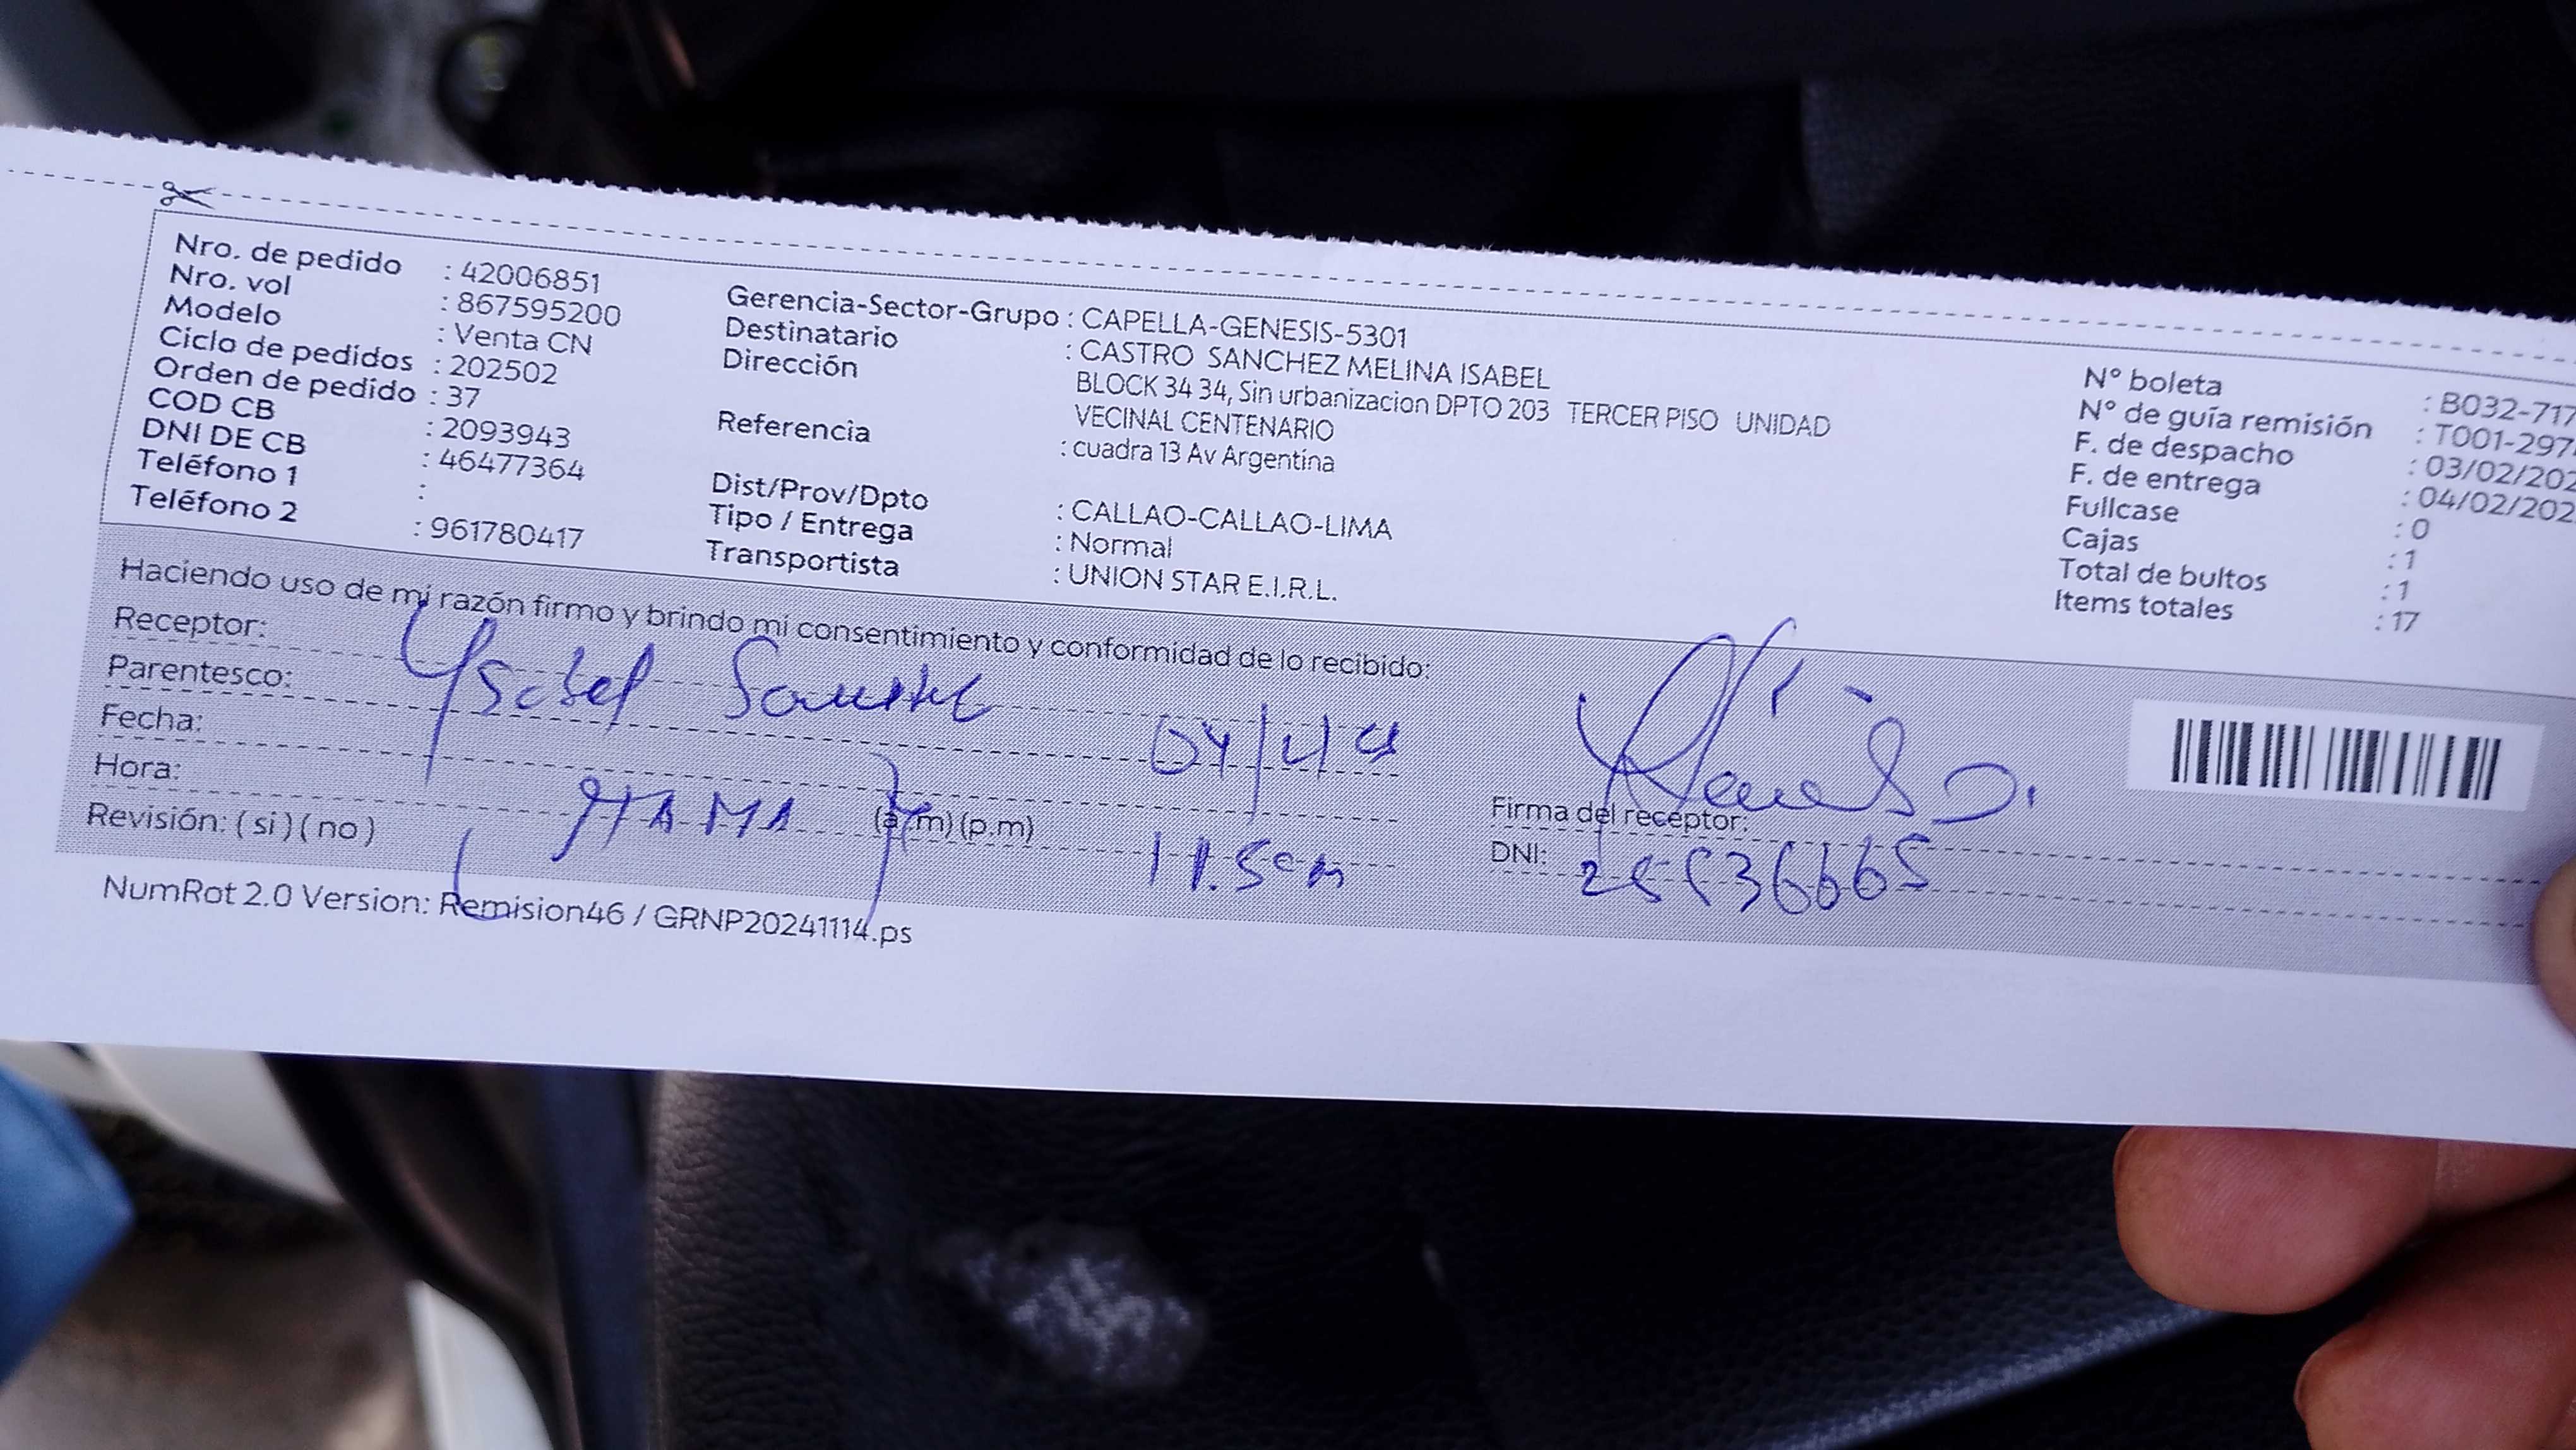 Nro. de pedido : 42006851
Nro. vol : 867595200
Modelo : Venta CN
Ciclo de pedidos : 202502
Orden de pedido : 37
COD CB : 2093943
DNI DE CB : 46477364
Teléfono 1 :
Teléfono 2 : 961780417
Gerencia-Sector-Grupo : CAPELLA-GENESIS-5301
Destinatario : CASTRO SANCHEZ MELINA ISABEL
Dirección BLOCK 34 34, Sin urbanizacion DPTO 203 TERCER PISO UNIDAD
VECINAL CENTENARIO
Referencia : cuadra 13 Av Argentina
Dist/Prov/Dpto : CALLAO-CALLAO-LIMA
Tipo / Entrega : Normal
Transportista : UNION STAR E.I.R.L.
N° boleta : B032-717
N° de guía remisión : T001-297
F. de despacho : 03/02/202
F. de entrega : 04/02/202
Fullcase : 0
Cajas : 1
Total de bultos : 1
Items totales : 17
Haciendo uso de mi razón firmo y brindo mi consentimiento y conformidad de lo recibido:
Receptor: Ysabel
Parentesco:
Fecha:
Hora: (a.m) (p.m)
Revisión: ( si ) ( no )
MAMA
Firma del receptor:
DNI:
NumRot 2.0 Version: Remision46 / GRNP20241114.ps